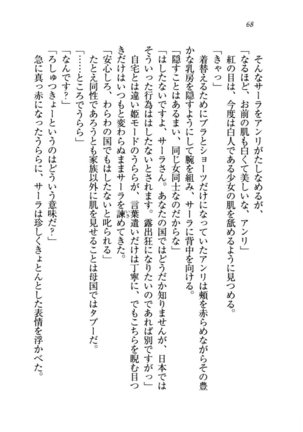 68
そんなサーラをアンリがたしなめるが、
「なるほど、お前の肌も白くて美しいな、アンリ」
紅の目は、今度は白人である少女の肌を舐めるように見つめる。
「きゃっ」
着替えるためにブラとショーツだけになっていたアンリは頬を赤らめながらその豊
かな乳房を隠すようにして腕を組み、サーラに背中を向ける。
「隠すことはあるまい、同じ女同士なのだからな」
「はしたないですよ、サーラさん。あなたの国ではどうだか知りませんが、日本では
そういった行為ははしたないとされます。露出狂になりたいのであれば別ですがっ」
自宅とは違い姫モードのうららが、言葉遣いだけは丁寧に、でもこちらを睨む目つ
きだけはいつもと変わらぬままサーラを諫めてきた。
「安心しろ、わらわの国でもはしたないと叱られる」
たとえ同性であろうとも家族以外に肌を見せることは母国ではタブーだ。
「……ところでうらら」
「なんです？」
「ろしゅつきょーというのはどういう意味だ？」
急に真っ赤になったうららに、サーラは珍しくきょとんとした表情を浮かべた。